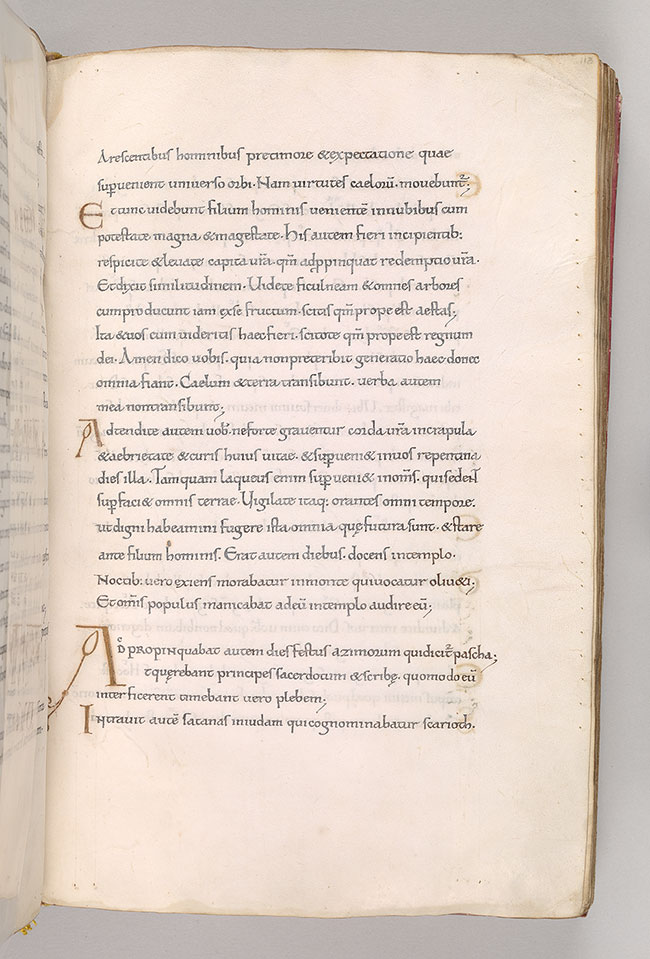 Arescentibus hominibus pretimore &expectatione quae
supuenient uniuerso orbi. Nam uirtutes caeloru̅. mouebunt᷑;
Et tunc uidebunt filium hominis ueniente̅ innubibus cum
potestate magna &magestate. His autem fieri incipientib:
respicite &leuate capita ur̅a. qm̅ adppinquat redemptio ur̅a.
Etdixit similitudinem. Uidete ficulneam &omnes arbores
cumproducunt iam exse fructum. scitis qm̅ prope est aestas;
Ita &uos cum uideritis haec fieri. scitote qm̅ prope est regnum
dei. Amen dico uobis. quia nonpreteribit generatio haec donec
omnia fiant. Caelum &terra transibunt. uerba autem
mea nontransibunt;
Adtendite autem uob̅. neforte grauentur corda ur̅a incrapula
&aebrietate &curis huius uitae. &supueni& inuos repentina
dies illa. Tamquam laqueus enim supueni& inom̅s. quisedent
supfaci& omnis terrae. Uigilate itaq: orantes omni tempore.
utdigni habeamini fugere ista omnia quę futura sunt. &stare
ante filium hominis. Erat autem diebus. docens intemplo.
Noctib: uero exiens morabatur inmonte quiuocatur oliu&i.
Etom̅is populus manicabat adeu̅ intemplo audire eu̅;
ADPROPINquabat autem dies festus azimorum quidicit᷑ pascha;
&tquęrebant principes sacerdotum &scribę. quomodo eu̅
interficerent timebant uero plebem;
Intrauit aute̅ satanas iniudam quicognominabatur scarioth.